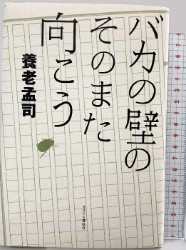 バカの壁の
そのまた
向こう
養老孟司